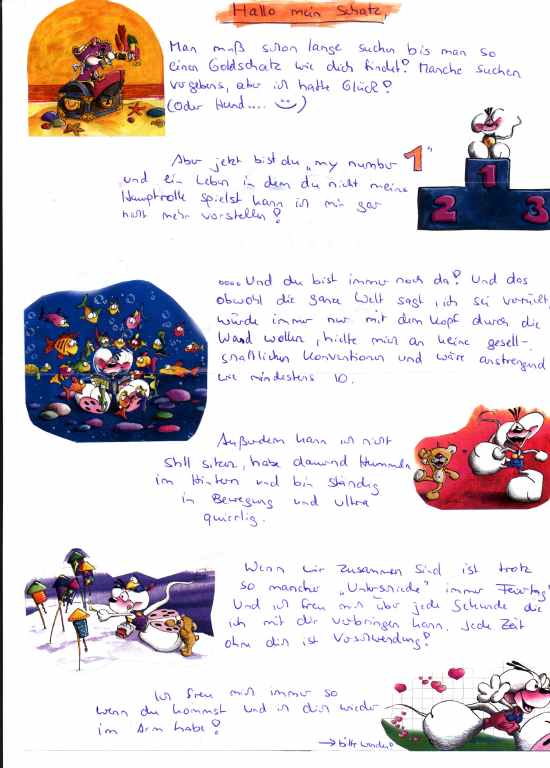 Hallo mein Schatz,
Man muß schon lange suchen bis man so
einen Goldschatz wie dich findet! Manche suchen
vergebens, aber ich hatte Glück!
(Oder Hund.... )
Aber jetzt bist du "my number 1"
und ein Leben in dem du nicht meine
Hauptrolle spielst kann ich mir gar
nicht mehr vorstellen!
1
2 3
.... Und du bist immer noch da! Und das
obwohl die ganze Welt sagt, ich sei verrückt,
würde immer nur mit dem Kopf durch die
Wand wollen, hielte mich an keine gesell-
schaftlichen Konventionen und wäre anstrengend
wie mindestens 10.
Außerdem kann ich nicht
still sitzen, habe dauernd Hummeln
im Hintern und bin ständig
in Bewegung und ultra
quirrlig.
Wenn wir zusammen sind ist trotz
so mancher "Unterschiede" immer Feiertag!
Und ich freu mich über jede Sekunde die
ich mit dir verbringen kann. Jede Zeit
ohne dich ist Verschwendung!
Ich freu mich immer so
wenn du kommst und ich dich wieder
im Arm habe!
→ bitte wenden!